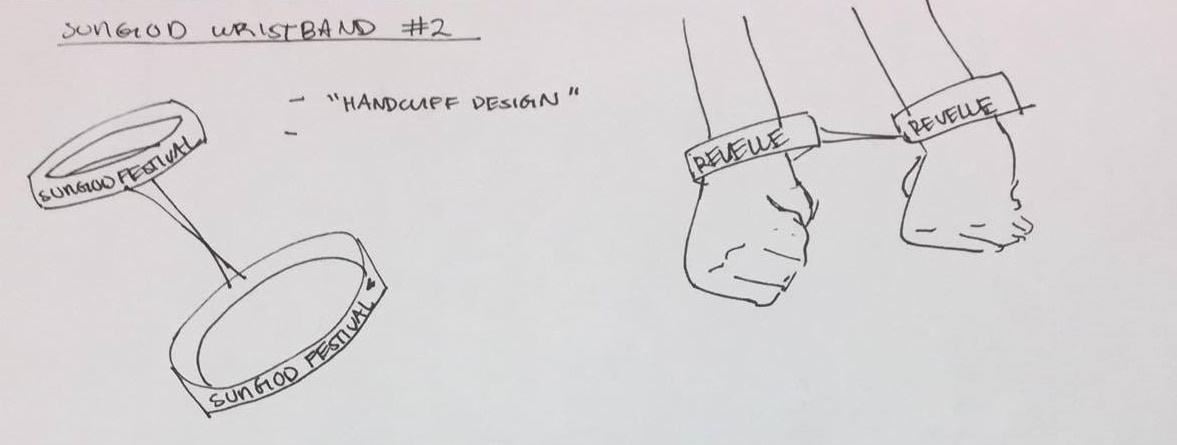 SUNGOD WRISTBAND #2
- "HANDCUFF DESIGN"
-
SUNGOD FESTIVAL
SUNGOD FESTIVAL
REVELLE
REVELLE